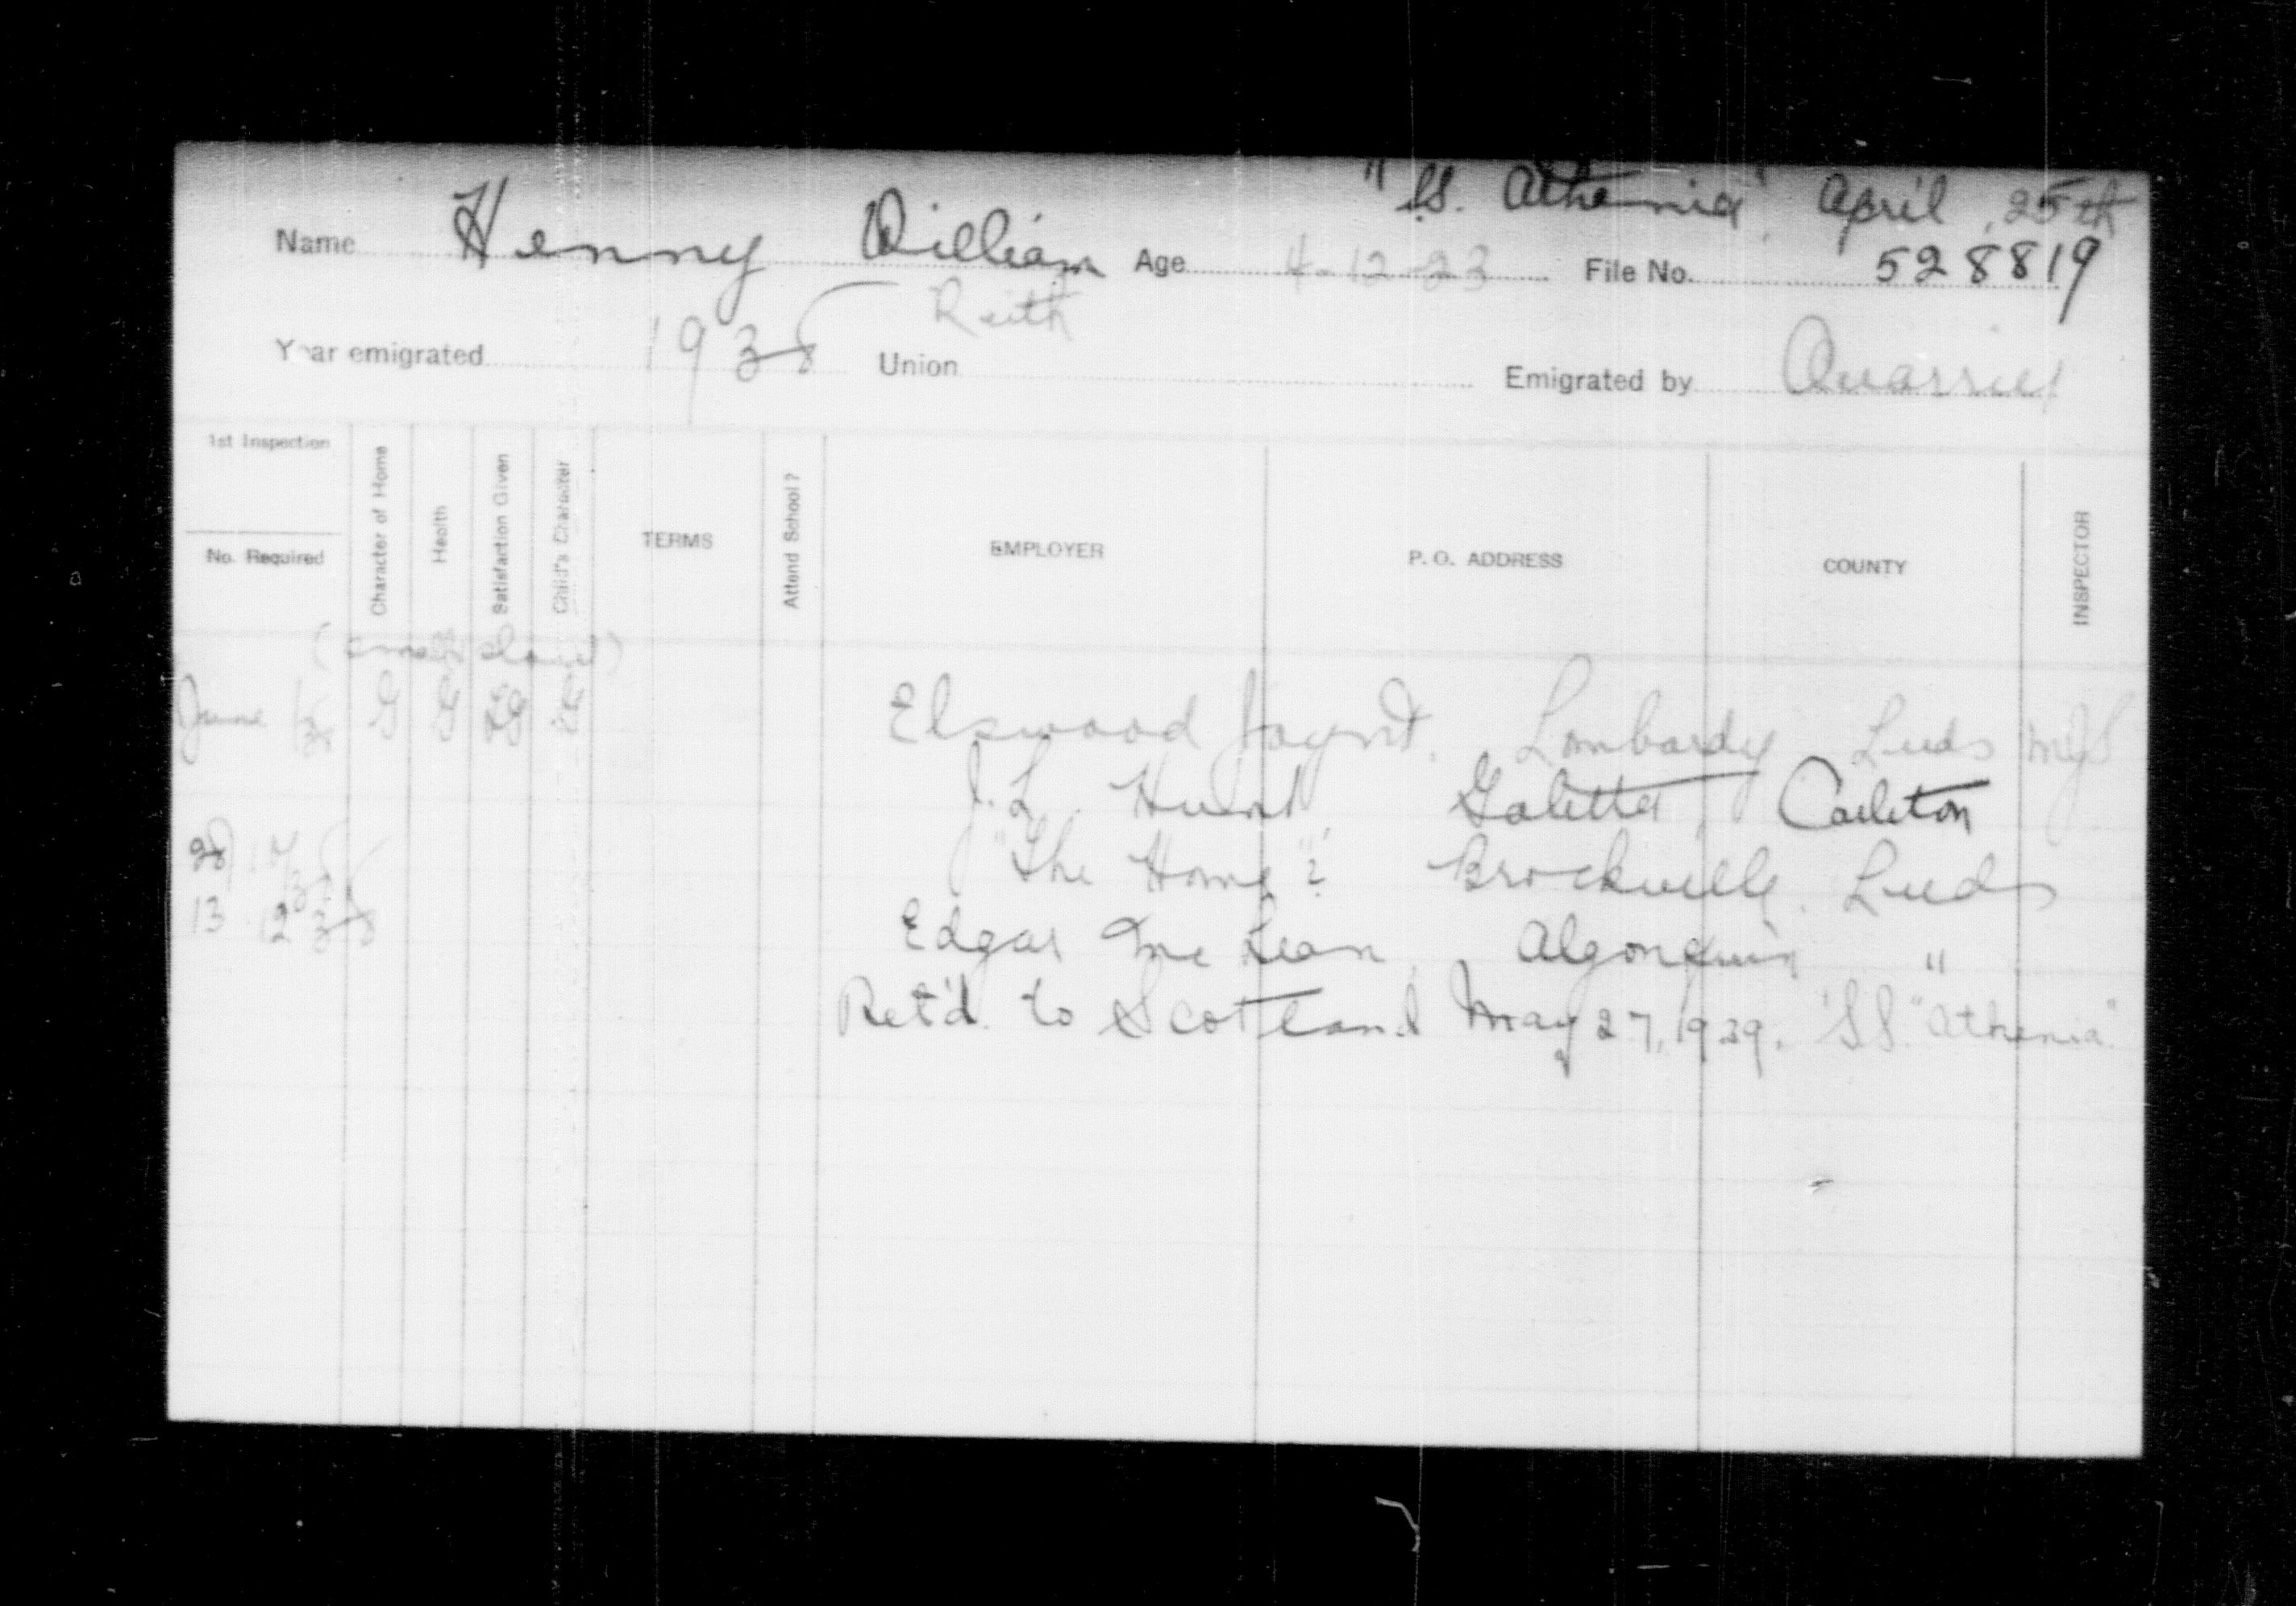 "SS. Athenia" April 25th
Name Henny William Age 4-12-23 File No. 528819
Reith
Year emigrated 1938 Union Emigrated by Quarrier
1st Inspection
No. Required
Character of Home
Health
Satisfaction Given
Child's Character
TERMS
Attend School?
EMPLOYER
P. O. ADDRESS
COUNTY
INSPECTOR
June 38 G G Elswood Joynt. Lombardy Leeds
J. L. Hunt Galetta, Carleton
28 "The Home"? Brockville. Leeds
13 12 38 Edgar McLean, Algonquin "
Ret'd. to Scotland May 27, 1939. SS. "Athenia".